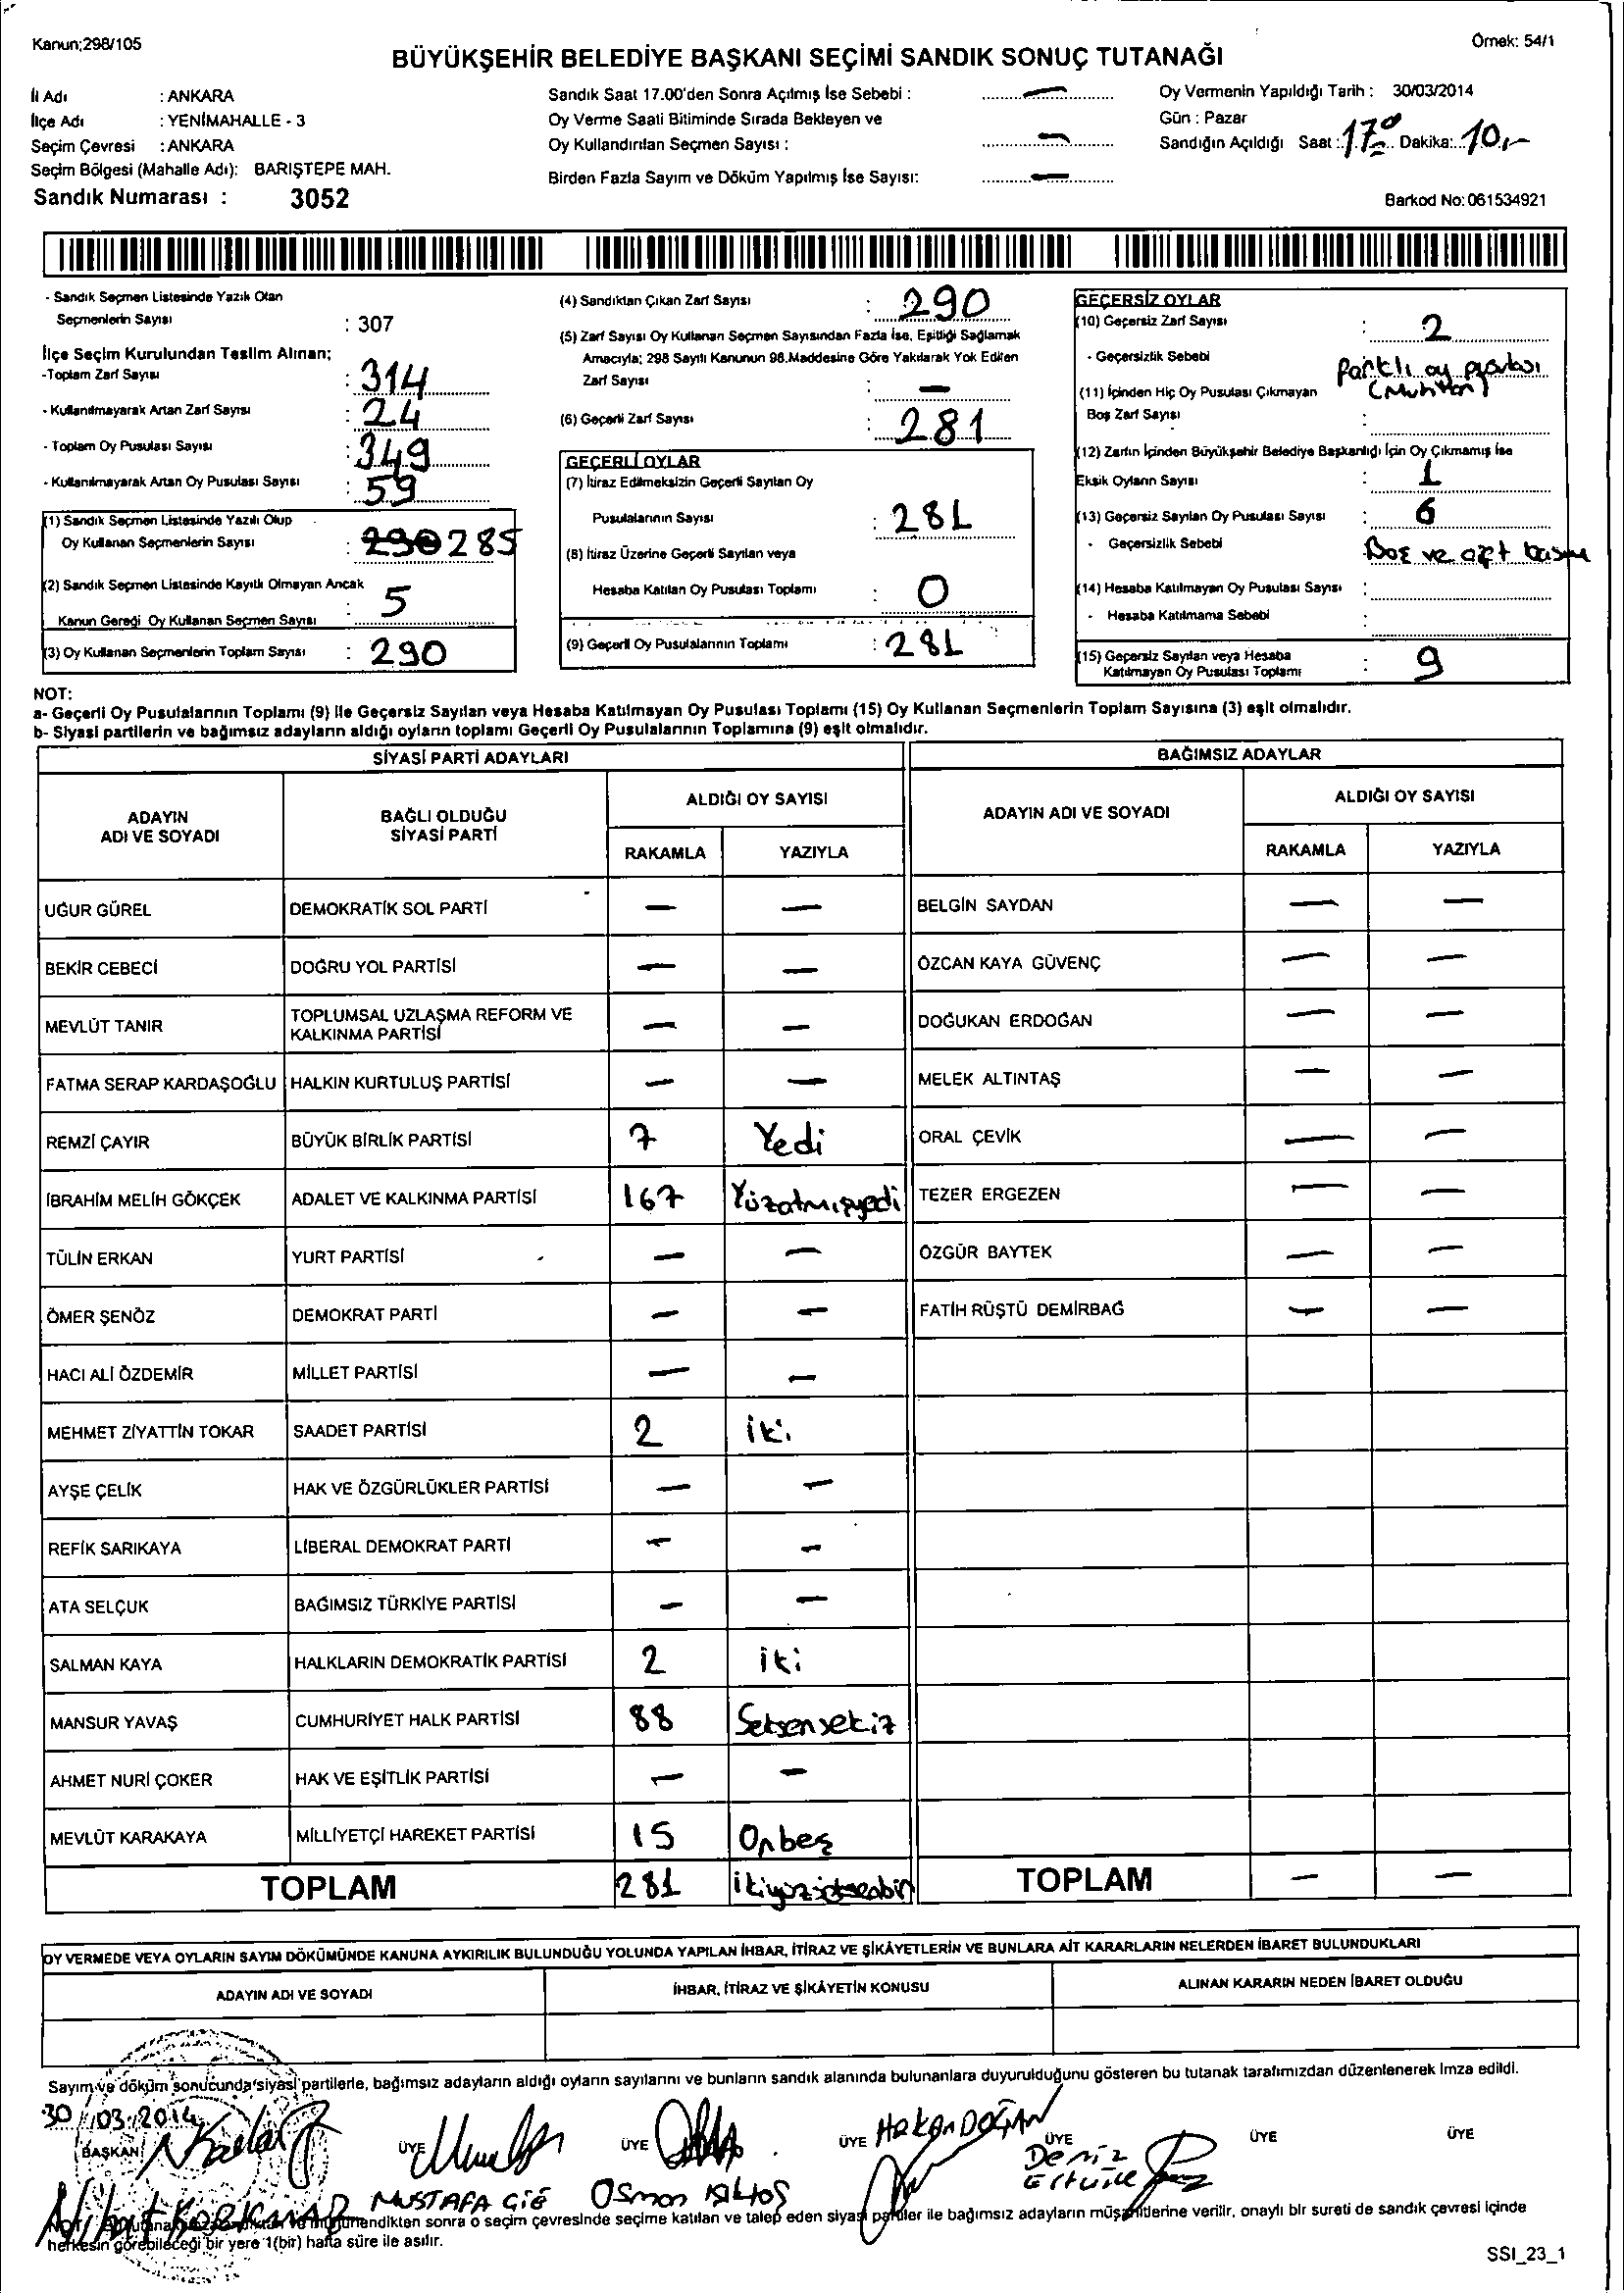 Kanun;298/105
Örnek: 54/1
BÜYÜKŞEHİR BELEDİYE BAŞKANI SEÇİMİ SANDIK SONUÇ TUTANAĞI
İl Adı : ANKARA
İlçe Adı : YENİMAHALLE - 3
Seçim Çevresi : ANKARA
Seçim Bölgesi (Mahalle Adı): BARIŞTEPE MAH.
Sandık Numarası : 3052
Sandık Saat 17.00'den Sonra Açılmış İse Sebebi : —
Oy Verme Saati Bitiminde Sırada Bekleyen ve
Oy Kullandırılan Seçmen Sayısı : —
Birden Fazla Sayım ve Döküm Yapılmış İse Sayısı: —
Oy Vermenin Yapıldığı Tarih : 30/03/2014
Gün : Pazar
Sandığın Açıldığı Saat : 17 00 Dakika: 10,-
Barkod No: 061534921
- Sandık Seçmen Listesinde Yazılı Olan
Seçmenlerin Sayısı : 307
İlçe Seçim Kurulundan Teslim Alınan;
-Toplam Zarf Sayısı : 314
- Kullanılmayarak Artan Zarf Sayısı : 24
- Toplam Oy Pusulası Sayısı : 349
- Kullanılmayarak Artan Oy Pusulası Sayısı : 59
(1) Sandık Seçmen Listesinde Yazılı Olup
Oy Kullanan Seçmenlerin Sayısı : 290 285
(2) Sandık Seçmen Listesinde Kayıtlı Olmayan Ancak
Kanun Gereği Oy Kullanan Seçmen Sayısı : 5
(3) Oy Kullanan Seçmenlerin Toplam Sayısı : 290
(4) Sandıktan Çıkan Zarf Sayısı : 290
(5) Zarf Sayısı Oy Kullanan Seçmen Sayısından Fazla İse, Eşitliği Sağlamak
Amacıyla; 298 Sayılı Kanunun 98.Maddesine Göre Yakılarak Yok Edilen
Zarf Sayısı : —
(6) Geçerli Zarf Sayısı : 281
GEÇERLİ OYLAR
(7) İtiraz Edilmeksizin Geçerli Sayılan Oy
Pusulalarının Sayısı : 281
(8) İtiraz Üzerine Geçerli Sayılan veya
Hesaba Katılan Oy Pusulası Toplamı : 0
(9) Geçerli Oy Pusulalarının Toplamı : 281
GEÇERSİZ OYLAR
(10) Geçersiz Zarf Sayısı : 2
- Geçersizlik Sebebi
oy pusulası
(11) İçinden Hiç Oy Pusulası Çıkmayan
Boş Zarf Sayısı :
(12) Zarfın İçinden Büyükşehir Belediye Başkanlığı İçin Oy Çıkmamış İse
Eksik Oyların Sayısı : 1
(13) Geçersiz Sayılan Oy Pusulası Sayısı : 6
- Geçersizlik Sebebi Boş ve çift basma
(14) Hesaba Katılmayan Oy Pusulası Sayısı :
- Hesaba Katılmama Sebebi :
(15) Geçersiz Sayılan veya Hesaba
Katılmayan Oy Pusulası Toplamı : 9
NOT:
a- Geçerli Oy Pusulalarının Toplamı (9) İle Geçersiz Sayılan veya Hesaba Katılmayan Oy Pusulası Toplamı (15) Oy Kullanan Seçmenlerin Toplam Sayısına (3) eşit olmalıdır.
b- Siyasi partilerin ve bağımsız adayların aldığı oyların toplamı Geçerli Oy Pusulalarının Toplamına (9) eşit olmalıdır.
SİYASİ PARTİ ADAYLARI BAĞIMSIZ ADAYLAR
ADAYIN ADI VE SOYADI BAĞLI OLDUĞU SİYASİ PARTİ ALDIĞI OY SAYISI ADAYIN ADI VE SOYADI ALDIĞI OY SAYISI
RAKAMLA YAZIYLA RAKAMLA YAZIYLA
UĞUR GÜREL DEMOKRATİK SOL PARTİ — — BELGİN SAYDAN — —
BEKİR CEBECİ DOĞRU YOL PARTİSİ — — ÖZCAN KAYA GÜVENÇ — —
MEVLÜT TANIR TOPLUMSAL UZLAŞMA REFORM VE KALKINMA PARTİSİ — — DOĞUKAN ERDOĞAN — —
FATMA SERAP KARDAŞOĞLU HALKIN KURTULUŞ PARTİSİ — — MELEK ALTINTAŞ — —
REMZİ ÇAYIR BÜYÜK BİRLİK PARTİSİ 7 Yedi ORAL ÇEVİK — —
İBRAHİM MELİH GÖKÇEK ADALET VE KALKINMA PARTİSİ 167 Yüzatmışyedi TEZER ERGEZEN — —
TÜLİN ERKAN YURT PARTİSİ — — ÖZGÜR BAYTEK — —
ÖMER ŞENÖZ DEMOKRAT PARTİ — — FATİH RÜŞTÜ DEMİRBAĞ — —
HACI ALİ ÖZDEMİR MİLLET PARTİSİ — —
MEHMET ZİYATTİN TOKAR SAADET PARTİSİ 2 iki
AYŞE ÇELİK HAK VE ÖZGÜRLÜKLER PARTİSİ — —
REFİK SARIKAYA LİBERAL DEMOKRAT PARTİ — —
ATA SELÇUK BAĞIMSIZ TÜRKİYE PARTİSİ — —
SALMAN KAYA HALKLARIN DEMOKRATİK PARTİSİ 2 iki
MANSUR YAVAŞ CUMHURİYET HALK PARTİSİ 88 Seksensekiz
AHMET NURİ ÇOKER HAK VE EŞİTLİK PARTİSİ — —
MEVLÜT KARAKAYA MİLLİYETÇİ HAREKET PARTİSİ 15 Onbeş
TOPLAM 281 TOPLAM — —
OY VERMEDE VEYA OYLARIN SAYIM DÖKÜMÜNDE KANUNA AYKIRILIK BULUNDUĞU YOLUNDA YAPILAN İHBAR, İTİRAZ VE ŞİKÂYETLERİN VE BUNLARA AİT KARARLARIN NELERDEN İBARET BULUNDUKLARI
ADAYIN ADI VE SOYADI İHBAR, İTİRAZ VE ŞİKÂYETİN KONUSU ALINAN KARARIN NEDEN İBARET OLDUĞU
Sayım ve döküm sonucunda siyasi partilerle, bağımsız adayların aldığı oyların sayılarını ve bunların sandık alanında bulunanlara duyurulduğunu gösteren bu tutanak tarafımızdan düzenlenerek imza edildi.
30/03/2014
BAŞKAN ÜYE ÜYE ÜYE HAKAN DOĞAN ÜYE ÜYE ÜYE
Deniz
MUSTAFA Osman
NOT: sonra o seçim çevresinde seçime katılan ve talep eden siyasi partiler ile bağımsız adayların müşahitlerine verilir, onaylı bir sureti de sandık çevresi içinde
herkesin görebileceği bir yere 1(bir) hafta süre ile asılır.
SSI_23_1